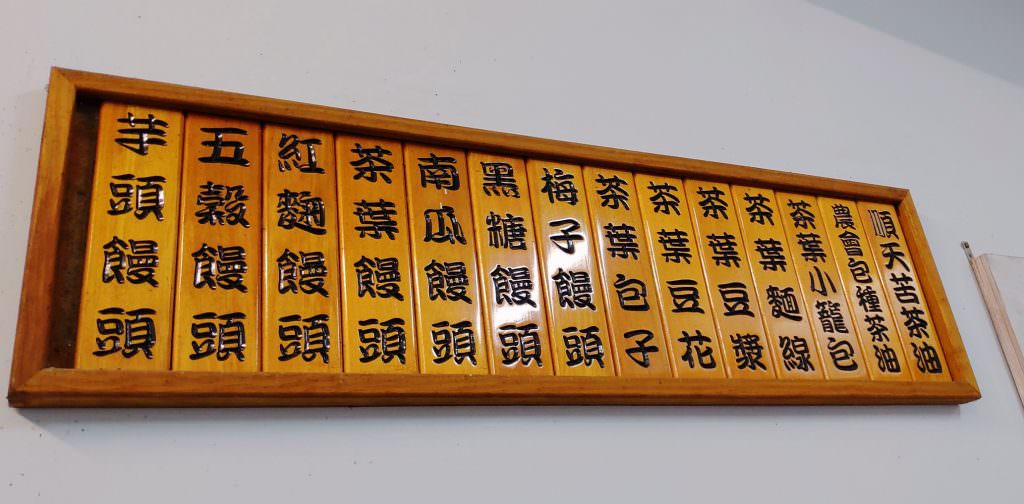 順天苦茶油
農會包種茶油
茶葉小籠包
茶葉麵線
茶葉豆漿
茶葉豆花
茶葉包子
梅子饅頭
黑糖饅頭
南瓜饅頭
茶葉饅頭
紅麯饅頭
五穀饅頭
芋頭饅頭